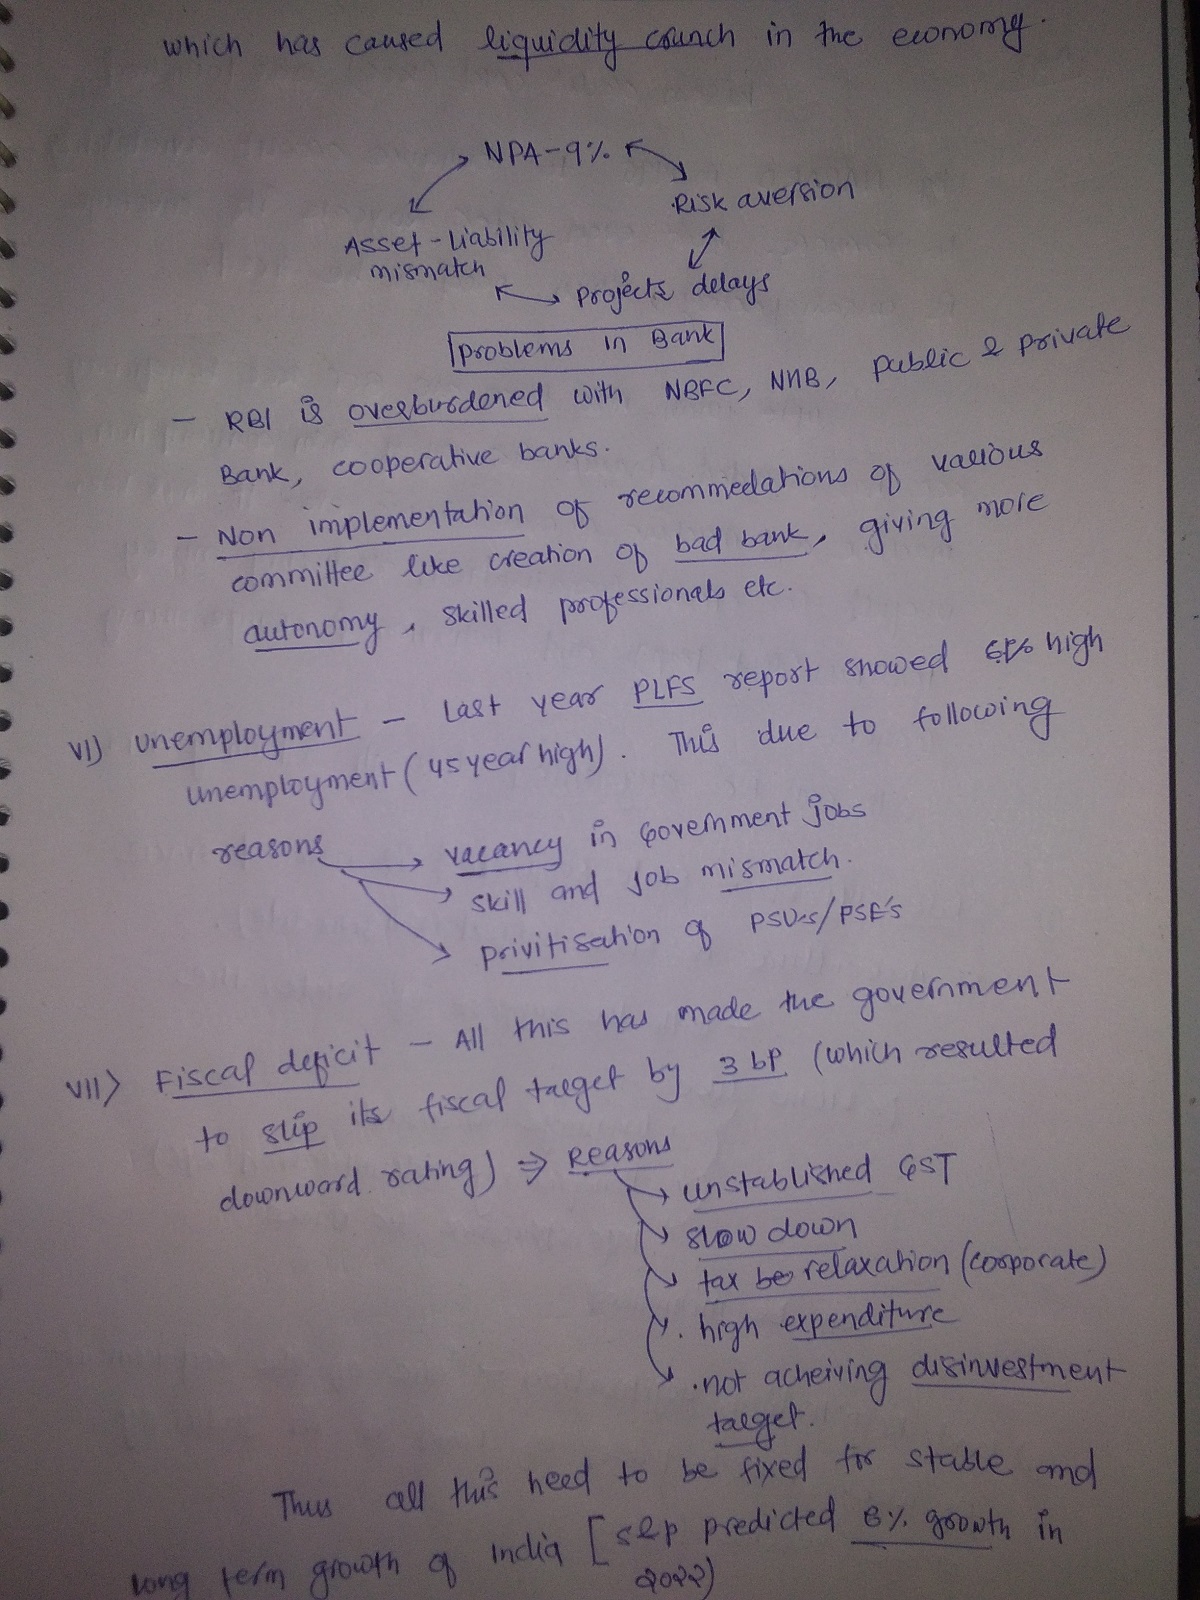 which has caused liquidity crunch in the economy.
NPA-9%
Risk aversion
Asset-Liability
mismatch
Projects delays
Problems in Bank
- RBI is overburdened with NBFC, NHB, public & private
Bank, cooperative banks.
- Non implementation of recommedations of various
committee like creation of bad bank, giving more
autonomy, skilled professionals etc.
VI) Unemployment - Last year PLFS report showed high
unemployment (45 year high). This due to following
reasons
vacancy in Government jobs
skill and job mismatch.
privitisation of PSU's/PSE's
VII> Fiscal deficit - All this has made the government
to slip its fiscal target by 3 bP (which resulted
downward rating) ⇒ Reasons
unstablished GST
slow down
tax relaxation (corporate)
high expenditure
not acheiving disinvestment
target.
Thus all this need to be fixed for stable and
long term growth of India [S&P predicted growth in
2022)